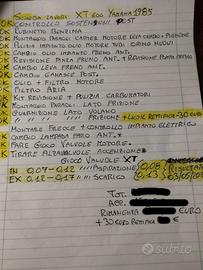 SCHEDA LAVORI XT 600 YAMAHA 1985
OK CONTROLLO SOSTENSIONI POST
OK RUBINETTO BENZINA
OK MONTAGGIO PARAOLI CARTER MOTORE LEVA CAMBIO + PIGNONE
OK PULIZIA IMPIANTO OLIO MOTORE
OK CAMBIO OLIO IMPIANTO FRENO ANT.
OK REVISIONE PINZA FRENO ANT. + REVISIONE POMPA FRENO
OK CAMBIO LEVA FRENO ANT.
OK CAMBIO GANASCE POST.
OK OLIO + FILTRO MOTORE
OK FILTRO ARIA
OK KIT REVISIONE + PULIZIA CARBURATORI
OK MONTAGGIO PARAOLI LATO FRIZIONE
OK GUARNIZIONE LATO VOLANO
OK " " " FRIZIONE + 30 EURO
OK MONTARE FRECCE + CONTROLLO IMPIANTO ELETTRICO
OK CAMBIO LAMPADA FARO ANT.
OK FARE GIOCO VALVOLE MOTORE
OK TIRARE ALZAVALVOLE ACCENSIONE
GIOCO VALVOLE XT
IN 0,07-0,12 ASPIRAZIONE 0,08
EX 0,12-0,17 SCARICO 0,13
TOT.
ACC.
RIMANENZA EURO
+ 30 EURO RETTIFICA €
subito